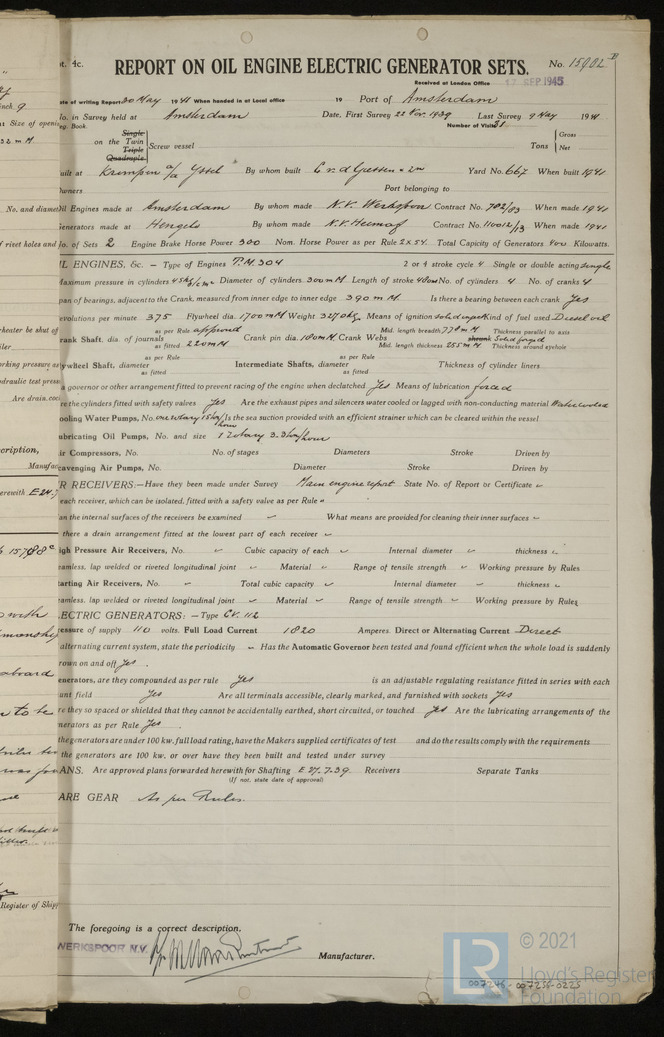 pt. 4c. REPORT ON OIL ENGINE ELECTRIC GENERATOR SETS. No. 15902 B
Received at London Office 17 SEP 1945
ate of writing Report 20 May 1941 When handed in at Local office 19 Port of Amsterdam
No. in Survey held at Amsterdam Date, First Survey 22 Nov. 1939 Last Survey 9 May 1941
Reg. Book. Number of Visits 31
on the Single Twin Triple Quadruple Screw vessel Tons Gross Net
uilt at Krimpen a/d Yssel By whom built C. v. d. Giessen & Zn Yard No. 667 When built 1941
wners Port belonging to
Oil Engines made at Amsterdam By whom made N.V. Werkspoor Contract No. 702/03 When made 1941
enerators made at Hengelo By whom made N.V. Heemaf Contract No. 110012/13 When made 1941
o. of Sets 2 Engine Brake Horse Power 300 Nom. Horse Power as per Rule 2x54 Total Capacity of Generators 400 Kilowatts.
IL ENGINES, &c. — Type of Engines T.M. 304 2 or 4 stroke cycle 4 Single or double acting single
aximum pressure in cylinders 45 kg/cm² Diameter of cylinders 300 mM Length of stroke 400 mM No. of cylinders 4 No. of cranks 4
pan of bearings, adjacent to the Crank, measured from inner edge to inner edge 390 mM. Is there a bearing between each crank Yes
evolutions per minute 375 Flywheel dia. 1700 mM Weight 3270 kg. Means of ignition solid inject Kind of fuel used Diesel oil
rank Shaft, dia. of journals as per Rule approved as fitted 220 mM Crank pin dia. 180 mM. Crank Webs Mid. length breadth 770 mM Mid. length thickness 255 mM Thickness parallel to axis shrunk Solid forged Thickness around eyehole
lywheel Shaft, diameter as per Rule as fitted Intermediate Shafts, diameter as per Rule as fitted Thickness of cylinder liners
a governor or other arrangement fitted to prevent racing of the engine when declutched Yes Means of lubrication forced
re the cylinders fitted with safety valves Yes Are the exhaust pipes and silencers water cooled or lagged with non-conducting material Water cooled
ooling Water Pumps, No. one rotary hour Is the sea suction provided with an efficient strainer which can be cleared within the vessel
ubricating Oil Pumps, No. and size 1 rotary hour
ir Compressors, No. No. of stages Diameters Stroke Driven by
cavenging Air Pumps, No. Diameter Stroke Driven by
R RECEIVERS:—Have they been made under Survey Main engine report State No. of Report or Certificate
each receiver, which can be isolated, fitted with a safety valve as per Rule
an the internal surfaces of the receivers be examined What means are provided for cleaning their inner surfaces
there a drain arrangement fitted at the lowest part of each receiver
igh Pressure Air Receivers, No. Cubic capacity of each Internal diameter thickness
eamless, lap welded or riveted longitudinal joint Material Range of tensile strength Working pressure by Rules
tarting Air Receivers, No. Total cubic capacity Internal diameter thickness
eamless, lap welded or riveted longitudinal joint Material Range of tensile strength Working pressure by Rules
ECTRIC GENERATORS:—Type CV. 112
ressure of supply 110 volts. Full Load Current 1820 Amperes. Direct or Alternating Current Direct
alternating current, state the periodicity Has the Automatic Governor been tested and found efficient when the whole load is suddenly
rown on and off Yes.
enerators, are they compounded as per rule Yes is an adjustable regulating resistance fitted in series with each
unt field Yes Are all terminals accessible, clearly marked, and furnished with sockets Yes
re they so spaced or shielded that they cannot be accidentally earthed, short circuited, or touched Yes Are the lubricating arrangements of the
nerators as per Rule Yes
the generators are under 100 kw. full load rating, have the Makers supplied certificates of test and do the results comply with the requirements
the generators are 100 kw. or over have they been built and tested under survey
ANS. Are approved plans forwarded herewith for Shafting E 27.7.39 Receivers Separate Tanks
(If not, state date of approval)
ARE GEAR As per Rules.
The foregoing is a correct description.
WERKSPOOR N.V. Manufacturer.
© 2021
LR
Lloyd's Register
Foundation
007245-007256-0225